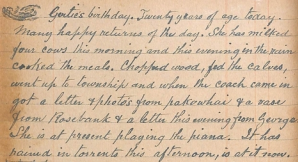 Gertie's birthday. Twenty years of age today.
Many happy returns of the day. She has milked
four cows this morning and this evening in the rain
cooked the meals. Chopped wood, fed the calves,
went up to township and when the coach came in
got a letter & photos from pakowhai & a vase
from Rosebank & a letter this evening from George
She is at present playing the piana. It has
rained in torrents this afternoon, is at it now.